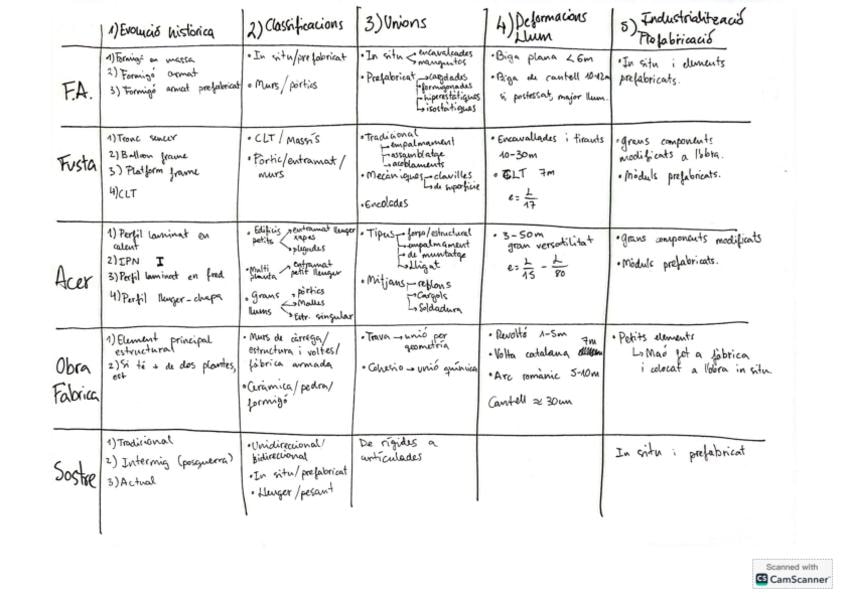 1) Evolució històrica
2) Classificacions
3) Unions
4) Deformacions
Llum
5) Industrialització
Prefabricació
F.A.
1) Formigó en massa
2) Formigó armat
3) Formigó armat prefabricat
• In situ/prefabricat
• Murs/pòrtics
• In situ encavalcades
manguitos
• Prefabricat cargolades
formigonades
hiperestàtiques
isostàtiques
• Biga plana < 6m
• Biga de cantell 10-12m
si postesat, major llum.
• In situ i elements
prefabricats.
Fusta
1) Tronc sencer
2) Balloon frame
3) Platform frame
4) CLT
• CLT / Massís
• Pòrtic/entramat/
murs
• Tradicional
empalmament
assemblatge
acoblaments
• Mecàniques clavilles
de superfície
• Encolades
• Encavallades i tirants
10-30m
• CLT 7m
e = L/17
• grans components
modificats a l'obra.
• Mòduls prefabricats.
Acer
1) Perfil laminat en
calent
2) IPN I
3) Perfil laminat en fred
4) Perfil lleuger-chapa
• Edificis petits
entramat lleuger
xapes
plegudes
• Multi planta
entramat
petit lleuger
• Grans llums
pòrtics
Malles
Estr. singular
• Tipus forja/estructural
empalmament
de muntatge
Lligat
• Mitjans reblons
Cargols
Soldadura
• 3-50m
gran versatilitat
e = L/15 - L/80
• grans components modificats
• Mòduls prefabricats.
Obra
Fàbrica
1) Element principal
estructural
2) Si té + de dos plantes,
est
• Murs de càrrega/
estructura i voltes/
fàbrica armada
• Ceràmica/pedra/
formigó
• Trava → unió per
geometria
• Cohesio → unió química
• Revoltó 1-5m
• Volta catalana 7m
• Arc romànic 5-10m
Cantell ≈ 30cm
• Petits elements
↳ Maó fet a fàbrica
i col·locat a l'obra in situ
Sostre
1) Tradicional
2) Intermig (posguerra)
3) Actual
• Unidireccional/
bidireccional
• In situ/prefabricat
• Lleuger/pesant
De rígides a
articulades
In situ i prefabricat
Scanned with
CS CamScanner